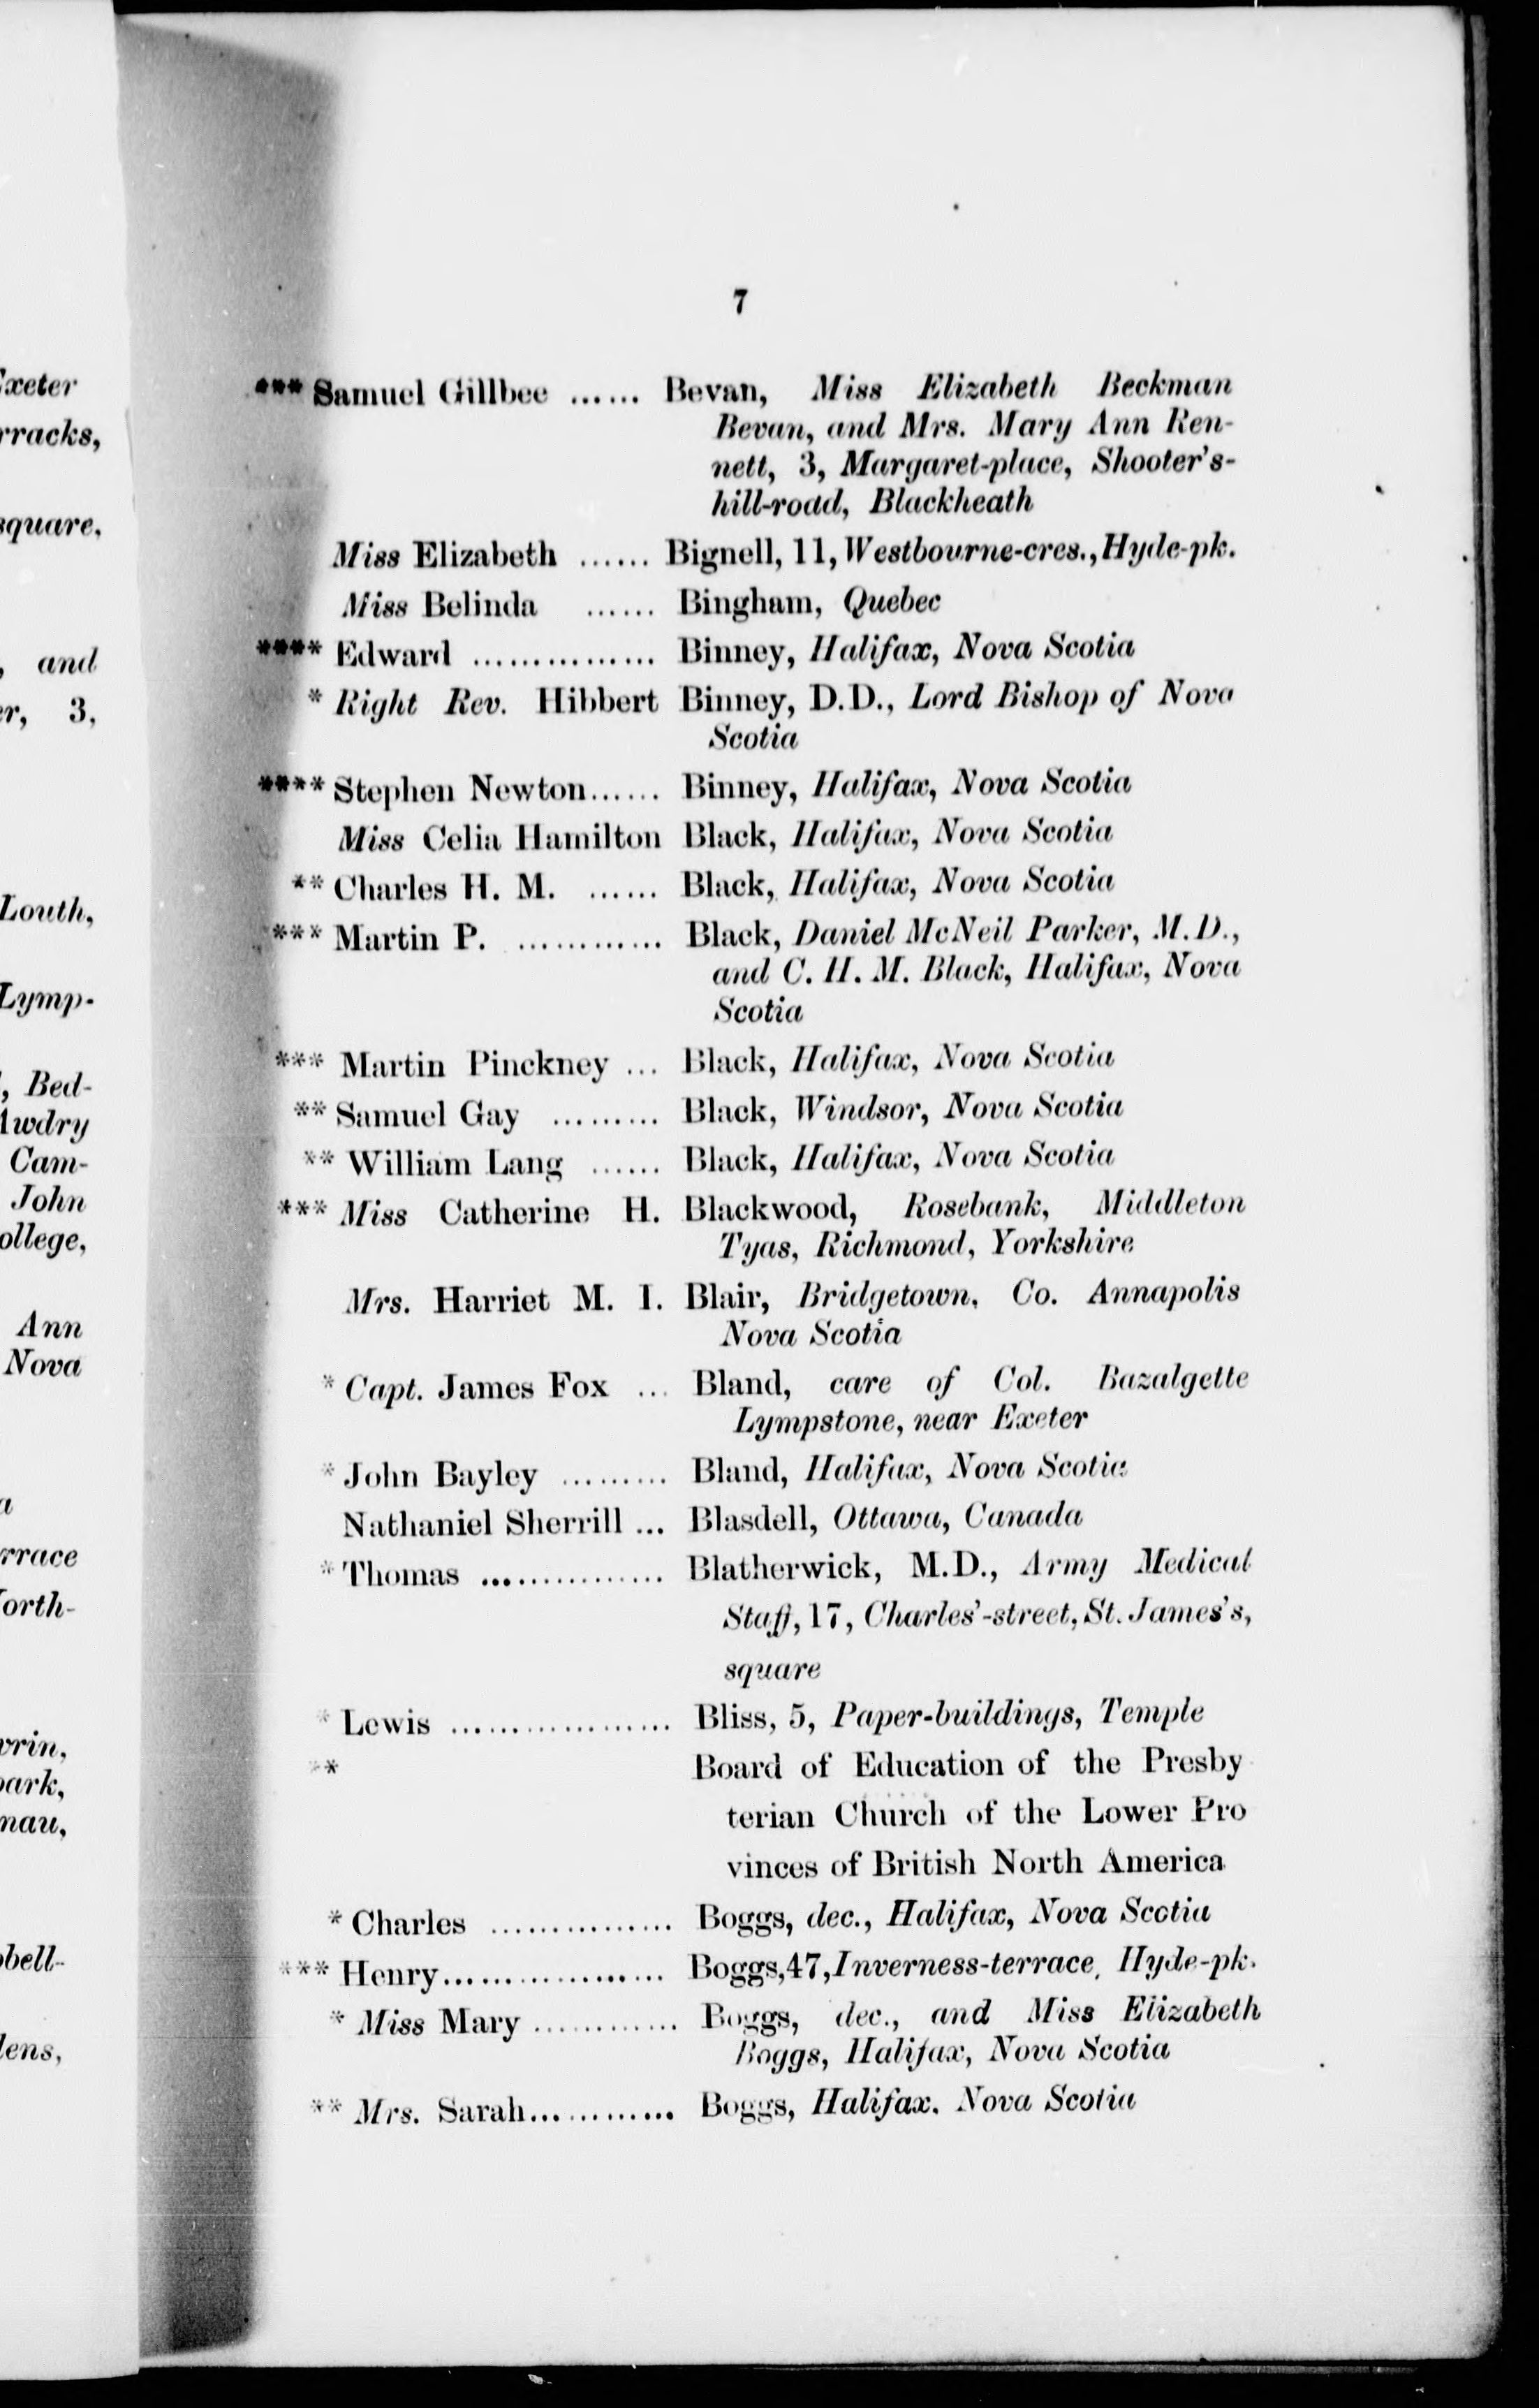 7
*** Samuel Gillbee ...... Bevan, Miss Elizabeth Beckman
Bevan, and Mrs. Mary Ann Ren-
nett, 3, Margaret-place, Shooter's-
hill-road, Blackheath
Miss Elizabeth ...... Bignell, 11, Westbourne-cres., Hyde-pk.
Miss Belinda ...... Bingham, Quebec
**** Edward ............... Binney, Halifax, Nova Scotia
* Right Rev. Hibbert Binney, D.D., Lord Bishop of Nova
Scotia
**** Stephen Newton...... Binney, Halifax, Nova Scotia
Miss Celia Hamilton Black, Halifax, Nova Scotia
** Charles H. M. ...... Black, Halifax, Nova Scotia
*** Martin P. ............ Black, Daniel McNeil Parker, M.D.,
and C. H. M. Black, Halifax, Nova
Scotia
*** Martin Pinckney ... Black, Halifax, Nova Scotia
** Samuel Gay ......... Black, Windsor, Nova Scotia
** William Lang ...... Black, Halifax, Nova Scotia
*** Miss Catherine H. Blackwood, Rosebank, Middleton
Tyas, Richmond, Yorkshire
Mrs. Harriet M. I. Blair, Bridgetown, Co. Annapolis
Nova Scotia
* Capt. James Fox ... Bland, care of Col. Bazalgette
Lympstone, near Exeter
* John Bayley ......... Bland, Halifax, Nova Scotia
Nathaniel Sherrill ... Blasdell, Ottawa, Canada
* Thomas ............... Blatherwick, M.D., Army Medical
Staff, 17, Charles'-street, St. James's,
square
* Lewis .................. Bliss, 5, Paper-buildings, Temple
** Board of Education of the Presby
terian Church of the Lower Pro
vinces of British North America
* Charles ............... Boggs, dec., Halifax, Nova Scotia
*** Henry.................. Boggs, 47, Inverness-terrace, Hyde-pk.
* Miss Mary ............ Boggs, dec., and Miss Elizabeth
Boggs, Halifax, Nova Scotia
** Mrs. Sarah............ Boggs, Halifax, Nova Scotia